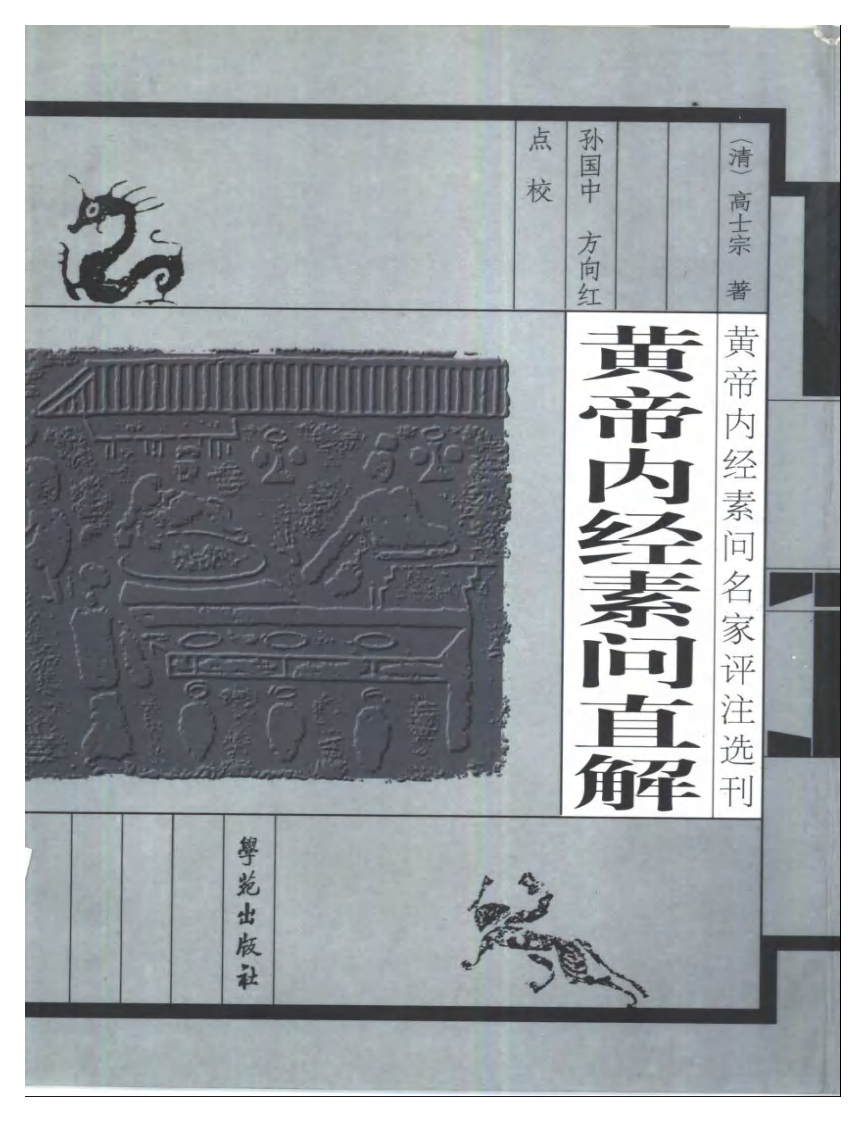 （清）高士宗 著
黄帝内经素问名家评注选刊
黄帝内经素问直解
孙国中 方向红
点校
學苑出版社